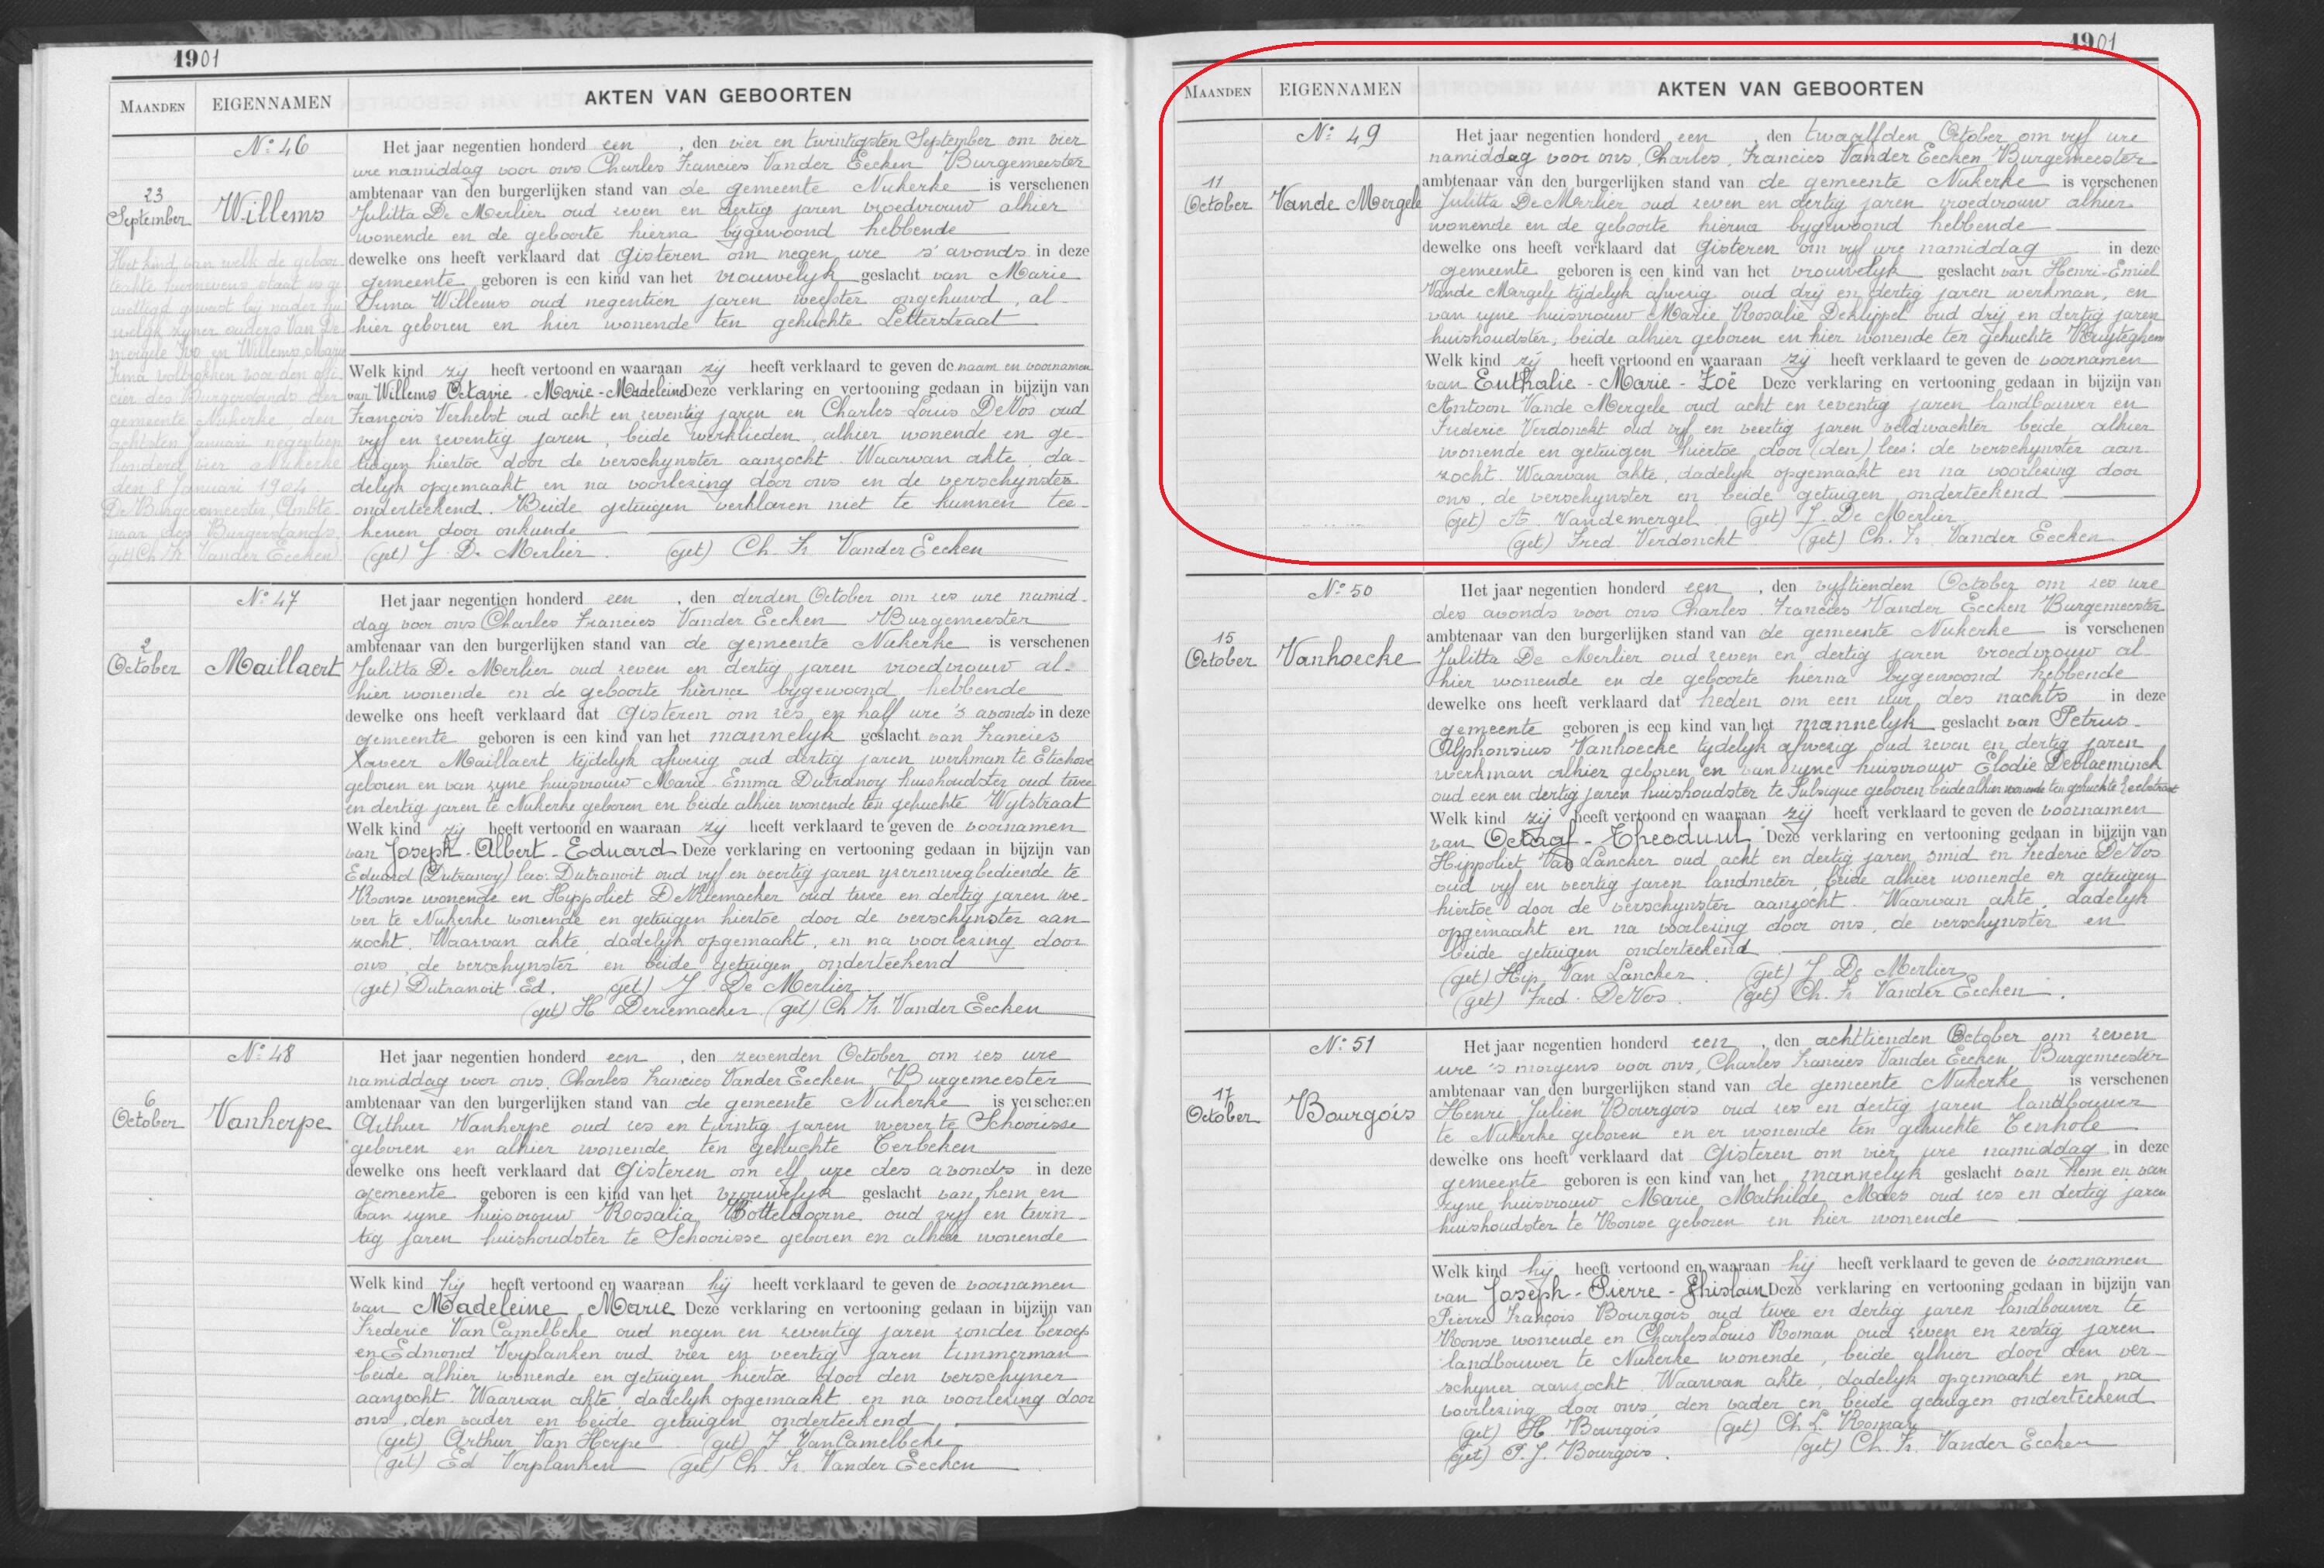 1901
MAANDEN EIGENNAMEN AKTEN VAN GEBOORTEN
No 46 Het jaar negentien honderd een, den vier en twintigsten September om vier
ure namiddag voor ons Charles Francies Vander Eecken Burgemeester
23 ambtenaar van den burgerlijken stand van de gemeente Nukerke is verschenen
September Willems Julitta De Merlier oud zeven en dertig jaren vroedvrouw alhier
wonende en de geboorte hierna bygewoond hebbende
dewelke ons heeft verklaard dat gisteren om negen ure s'avonds in deze
gemeente geboren is een kind van het vrouwelyk geslacht van Marie
Irma Willems oud negentien jaren weefster ongehuwd, al-
hier geboren en hier wonende ten gehuchte Letterstraat
Welk kind zij heeft vertoond en waaraan zij heeft verklaard te geven de naam en voornamen
van Willems Octavie - Marie - Madeleine Deze verklaring en vertooning gedaan in bijzijn van
François Verhelst oud acht en zeventig jaren en Charles Louis De Vos oud
vyf en zeventig jaren, beide werklieden, alhier wonende en ge-
tuigen hiertoe door de verschynster aanzocht. Waarvan akte, da-
delyk opgemaakt en na voorlezing door ons en de verschynster
onderteekend. Beide getuigen verklaren niet te kunnen tee-
kenen door onkunde
(get) J. De Merlier (get) Ch. Fr. Vander Eecken
Het kind van welk de geboor-
teakte hiernevens staat is ge
wettigd geweest by nader hu
welyk zyner ouders Van De
mergele Ivo en Willems Marie
Irma voltrokken voor den offi-
cier des Burgerstands der
gemeente Nukerke den
achtsten Januari negentien
honderd vier Nukerke
den 8 Januari 1904
De Burgemeester, Ambte-
naar des Burgerstands
(get) Ch. Fr. Vander Eecken
No 47 Het jaar negentien honderd een, den derden October om zes ure namid-
dag voor ons Charles Francies Vander Eecken Burgemeester
2 ambtenaar van den burgerlijken stand van de gemeente Nukerke is verschenen
October Maillaert Julitta De Merlier oud zeven en dertig jaren vroedvrouw al-
hier wonende en de geboorte hierna bygewoond hebbende
dewelke ons heeft verklaard dat gisteren om zes en half ure 's avonds in deze
gemeente geboren is een kind van het mannelyk geslacht van Francies
Xaveer Maillaert tijdelyk afwezig oud dertig jaren werkman te Etichove
geboren en van zyne huisvrouw Marie Emma Dutranoy huishoudster oud twee
en dertig jaren te Nukerke geboren en beide alhier wonende ten gehuchte Wytstraat
Welk kind zij heeft vertoond en waaraan zij heeft verklaard te geven de voornamen
van Joseph - Albert - Eduard Deze verklaring en vertooning gedaan in bijzijn van
Eduard (Dutranoy) lees: Dutranoit oud vyf en veertig jaren yzerenwegbediende te
Ronse wonende en Hippoliet DeRiemacker oud twee en dertig jaren we-
ver te Nukerke wonende en getuigen hiertoe door de verschynster aan
zocht. Waarvan akte, dadelyk opgemaakt, en na voorlezing door
ons, de verschynster en beide getuigen onderteekend
(get) Dutranoit Ed. (get) J De Merlier
(get) H Deriemacker (get) Ch. Fr. Vander Eecken
No 48 Het jaar negentien honderd een, den zevenden October om zes ure
namiddag voor ons, Charles Francies Vander Eecken, Burgemeester
6 ambtenaar van den burgerlijken stand van de gemeente Nukerke is verschenen
October Vanherpe Arthur Vanherpe oud zes en twintig jaren wever te Schoorisse
geboren en alhier wonende ten gehuchte Cerbeken
dewelke ons heeft verklaard dat gisteren om elf ure des avonds in deze
gemeente geboren is een kind van het vrouwelyk geslacht van hem en
van zyne huisvrouw Rosalia Botteldoorne oud vyf en twin-
tig jaren huishoudster te Schoorisse geboren en alhier wonende
Welk kind hij heeft vertoond en waaraan hij heeft verklaard te geven de voornamen
van Madeleine Marie Deze verklaring en vertooning gedaan in bijzijn van
Frederic Van Camelbeke oud negen en zeventig jaren zonder beroep
en Edmond Verplanken oud vier en veertig jaren timmerman
beide alhier wonende en getuigen hiertoe door den verschyner
aanzocht. Waarvan akte, dadelyk opgemaakt en na voorlezing door
ons, den vader en beide getuigen onderteekend
(get) Arthur Van Herpe (get) F VanCamelbeke
(get) Ed Verplanken (get) Ch. Fr. Vander Eecken
1901
MAANDEN EIGENNAMEN AKTEN VAN GEBOORTEN
No 49 Het jaar negentien honderd een, den twaalfden October om vyf ure
namiddag voor ons, Charles, Francies Vander Eecken, Burgemeester
11 ambtenaar van den burgerlijken stand van de gemeente Nukerke is verschenen
October Vande Mergele Julitta De Merlier oud zeven en dertig jaren vroedvrouw alhier
wonende en de geboorte hierna bygewoond hebbende
dewelke ons heeft verklaard dat gisteren om vyf ure namiddag in deze
gemeente geboren is een kind van het vrouwelyk geslacht van Henri-Emiel
Vande Mergele tijdelyk afwezig oud drij en dertig jaren werkman, en
van zyne huisvrouw Marie Rosalie Deklippel oud drij en dertig jaren
huishoudster, beide alhier geboren en hier wonende ten gehuchte Bruyteghem
Welk kind zij heeft vertoond en waaraan zij heeft verklaard te geven de voornamen
van Euthalie - Marie - Zoë Deze verklaring en vertooning gedaan in bijzijn van
Antoon Vande Mergele oud acht en zeventig jaren landbouwer en
Frederic Verdonckt oud vyf en veertig jaren veldwachter beide alhier
wonende en getuigen hiertoe door (den) lees: de verschynster aan-
zocht. Waarvan akte, dadelyk opgemaakt en na voorlezing door
ons, de verschynster en beide getuigen onderteekend
(get) A. Vandemergel (get) J. De Merlier
(get) Fred. Verdonckt (get) Ch. Fr. Vander Eecken
No 50 Het jaar negentien honderd een, den vyftienden October om zes ure
des avonds voor ons Charles Francies Vander Eecken Burgemeester
15 ambtenaar van den burgerlijken stand van de gemeente Nukerke is verschenen
October Vanhoecke Julitta De Merlier oud zeven en dertig jaren vroedvrouw al-
hier wonende en de geboorte hierna bygewoond hebbende
dewelke ons heeft verklaard dat heden om een uur des nachts in deze
gemeente geboren is een kind van het mannelyk geslacht van Petrus-
Alphonsius Vanhoecke tydelyk afwezig oud zeven en dertig jaren
werkman alhier geboren en van zyne huisvrouw Elodie Devlaeminck
oud een en dertig jaren huishoudster te Sulsique geboren beide alhier wonende ten gehuchte Zeelstraat
Welk kind zij heeft vertoond en waaraan zij heeft verklaard te geven de voornamen
van Octaaf - Theoduul Deze verklaring en vertooning gedaan in bijzijn van
Hippoliet Van Lancker oud acht en dertig jaren, smid en Frederic De Vos
oud vyf en veertig jaren landmeter, beide alhier wonende en getuigen
hiertoe door de verschynster aanzocht. Waarvan akte, dadelyk
opgemaakt en na voorlezing door ons, de verschynster en
beide getuigen onderteekend
(get) Hip. Van Lancker (get) J. De Merlier
(get) Fred. DeVos (get) Ch. Fr. Vander Eecken.
No 51 Het jaar negentien honderd een, den achttienden October om zeven
ure 's morgens voor ons, Charles Francies Vander Eecken, Burgemeester
17 ambtenaar van den burgerlijken stand van de gemeente Nukerke is verschenen
October Bourgois Henri Julien Bourgois oud zes en dertig jaren landbouwer
te Nukerke geboren en er wonende ten gehuchte Tenhole
dewelke ons heeft verklaard dat gisteren om vier ure namiddag in deze
gemeente geboren is een kind van het mannelyk geslacht van hem en van
zyne huisvrouw Marie Mathilde Maes oud zes en dertig jaren
huishoudster te Ronse geboren en hier wonende
Welk kind hij heeft vertoond en waaraan hij heeft verklaard te geven de voornamen
van Joseph - Pierre - Ghislain Deze verklaring en vertooning gedaan in bijzijn van
Pierre François Bourgois oud twee en dertig jaren landbouwer te
Ronse wonende en Charles Louis Roman oud zeven en zestig jaren
landbouwer te Nukerke wonende, beide alhier door den ver-
schyner aanzocht. Waarvan akte, dadelyk opgemaakt en na
voorlezing door ons, den vader en beide getuigen onderteekend
(get) H Bourgois (get) Ch. L. Roman
(get) P. J. Bourgois. (get) Ch. Fr. Vander Eecken